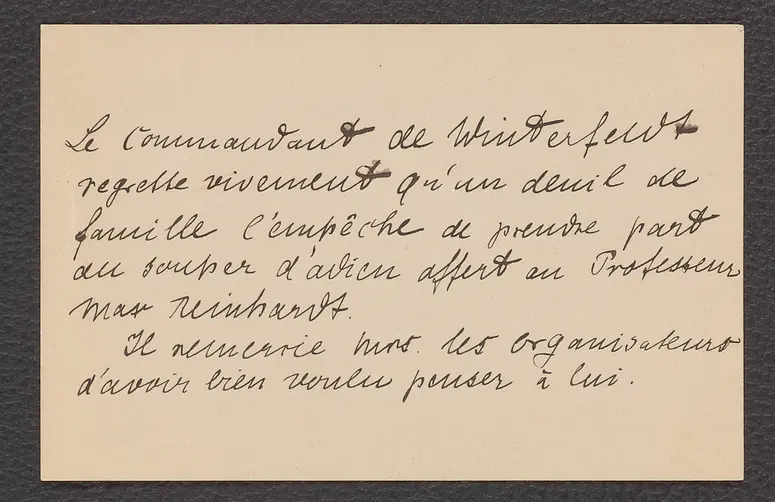 Le Commandant de Winterfeldt
regrette vivement qu'un deuil de
famille l'empêche de prendre part
au souper d'adieu offert au Professeur
Max Reinhardt.
Il remercie Mrs. les organisateurs
d'avoir bien voulu penser à lui.